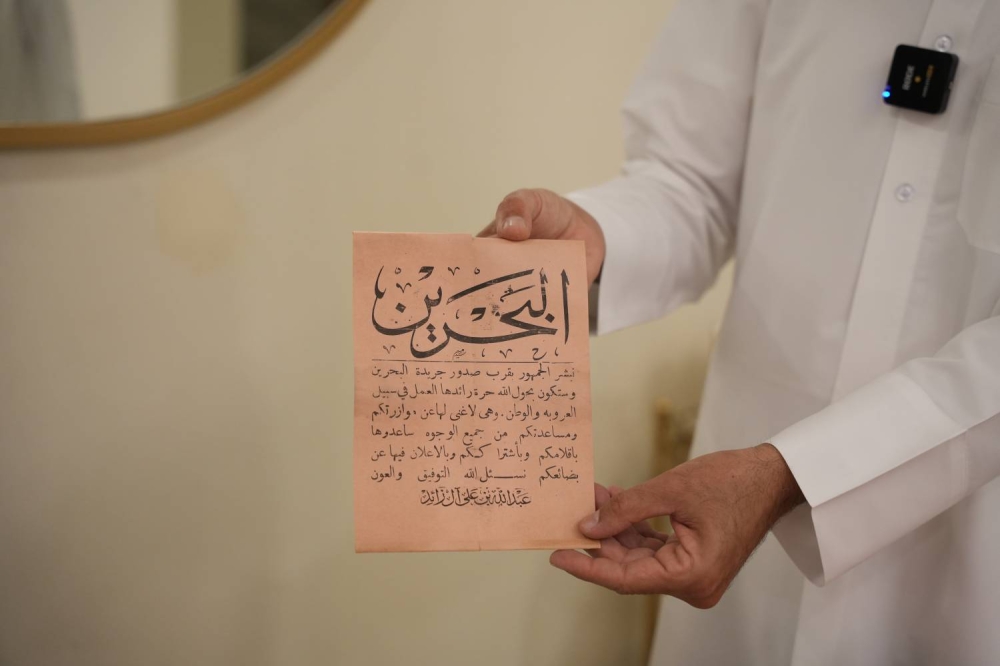 البحرين
نبشر الجمهور بقرب صدور جريدة البحرين
وستكون بحول الله حرة رائدها العمل في سبيل
العروبه والوطن. وهى لاغنى لها عن موازرتكم
ومساعدتكم من جميع الوجوه ساعدوها
باقلامكم وبأشتراككم وبالاعلان فيها عن
بضائعكم نسئل الله التوفيق والعون
عبدالله بن علي آل زائد
RODE